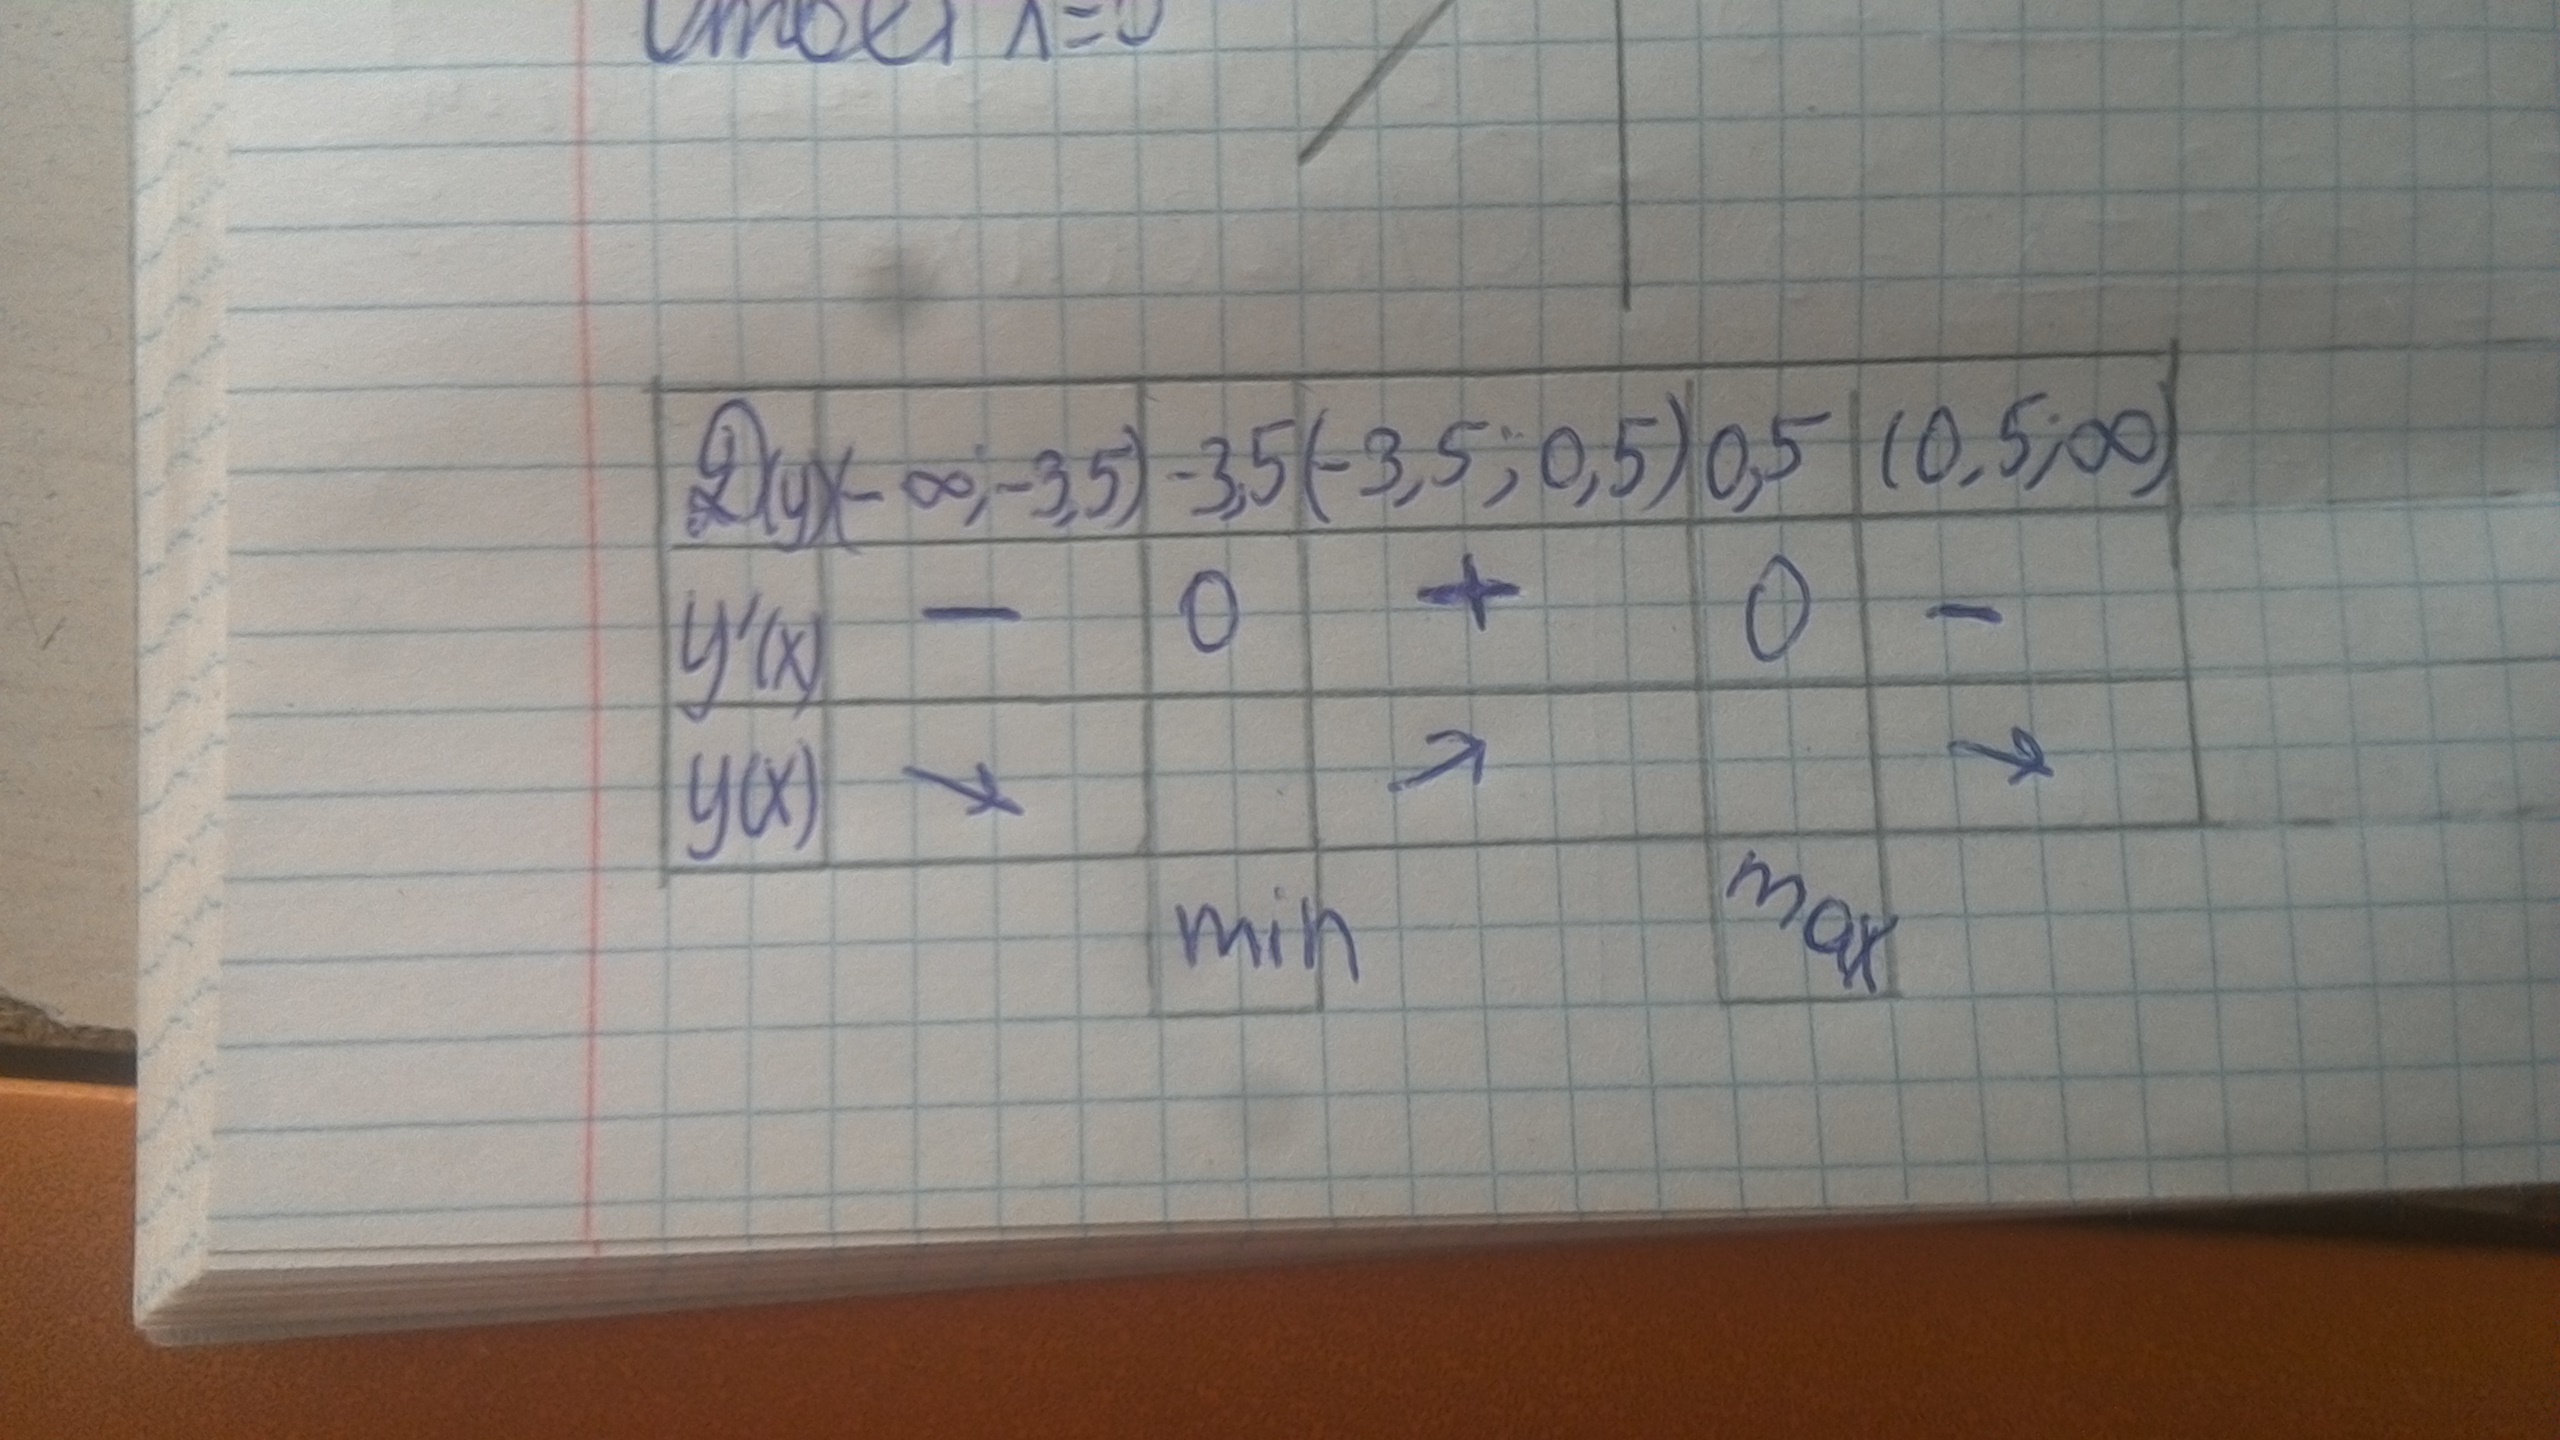 Ответ x=0
D(y) (-∞;-3,5) -3,5 (-3,5;0,5) 0,5 (0,5;∞)
y'(x) − 0 + 0 −
y(x) ↘ ↗ ↘
min max